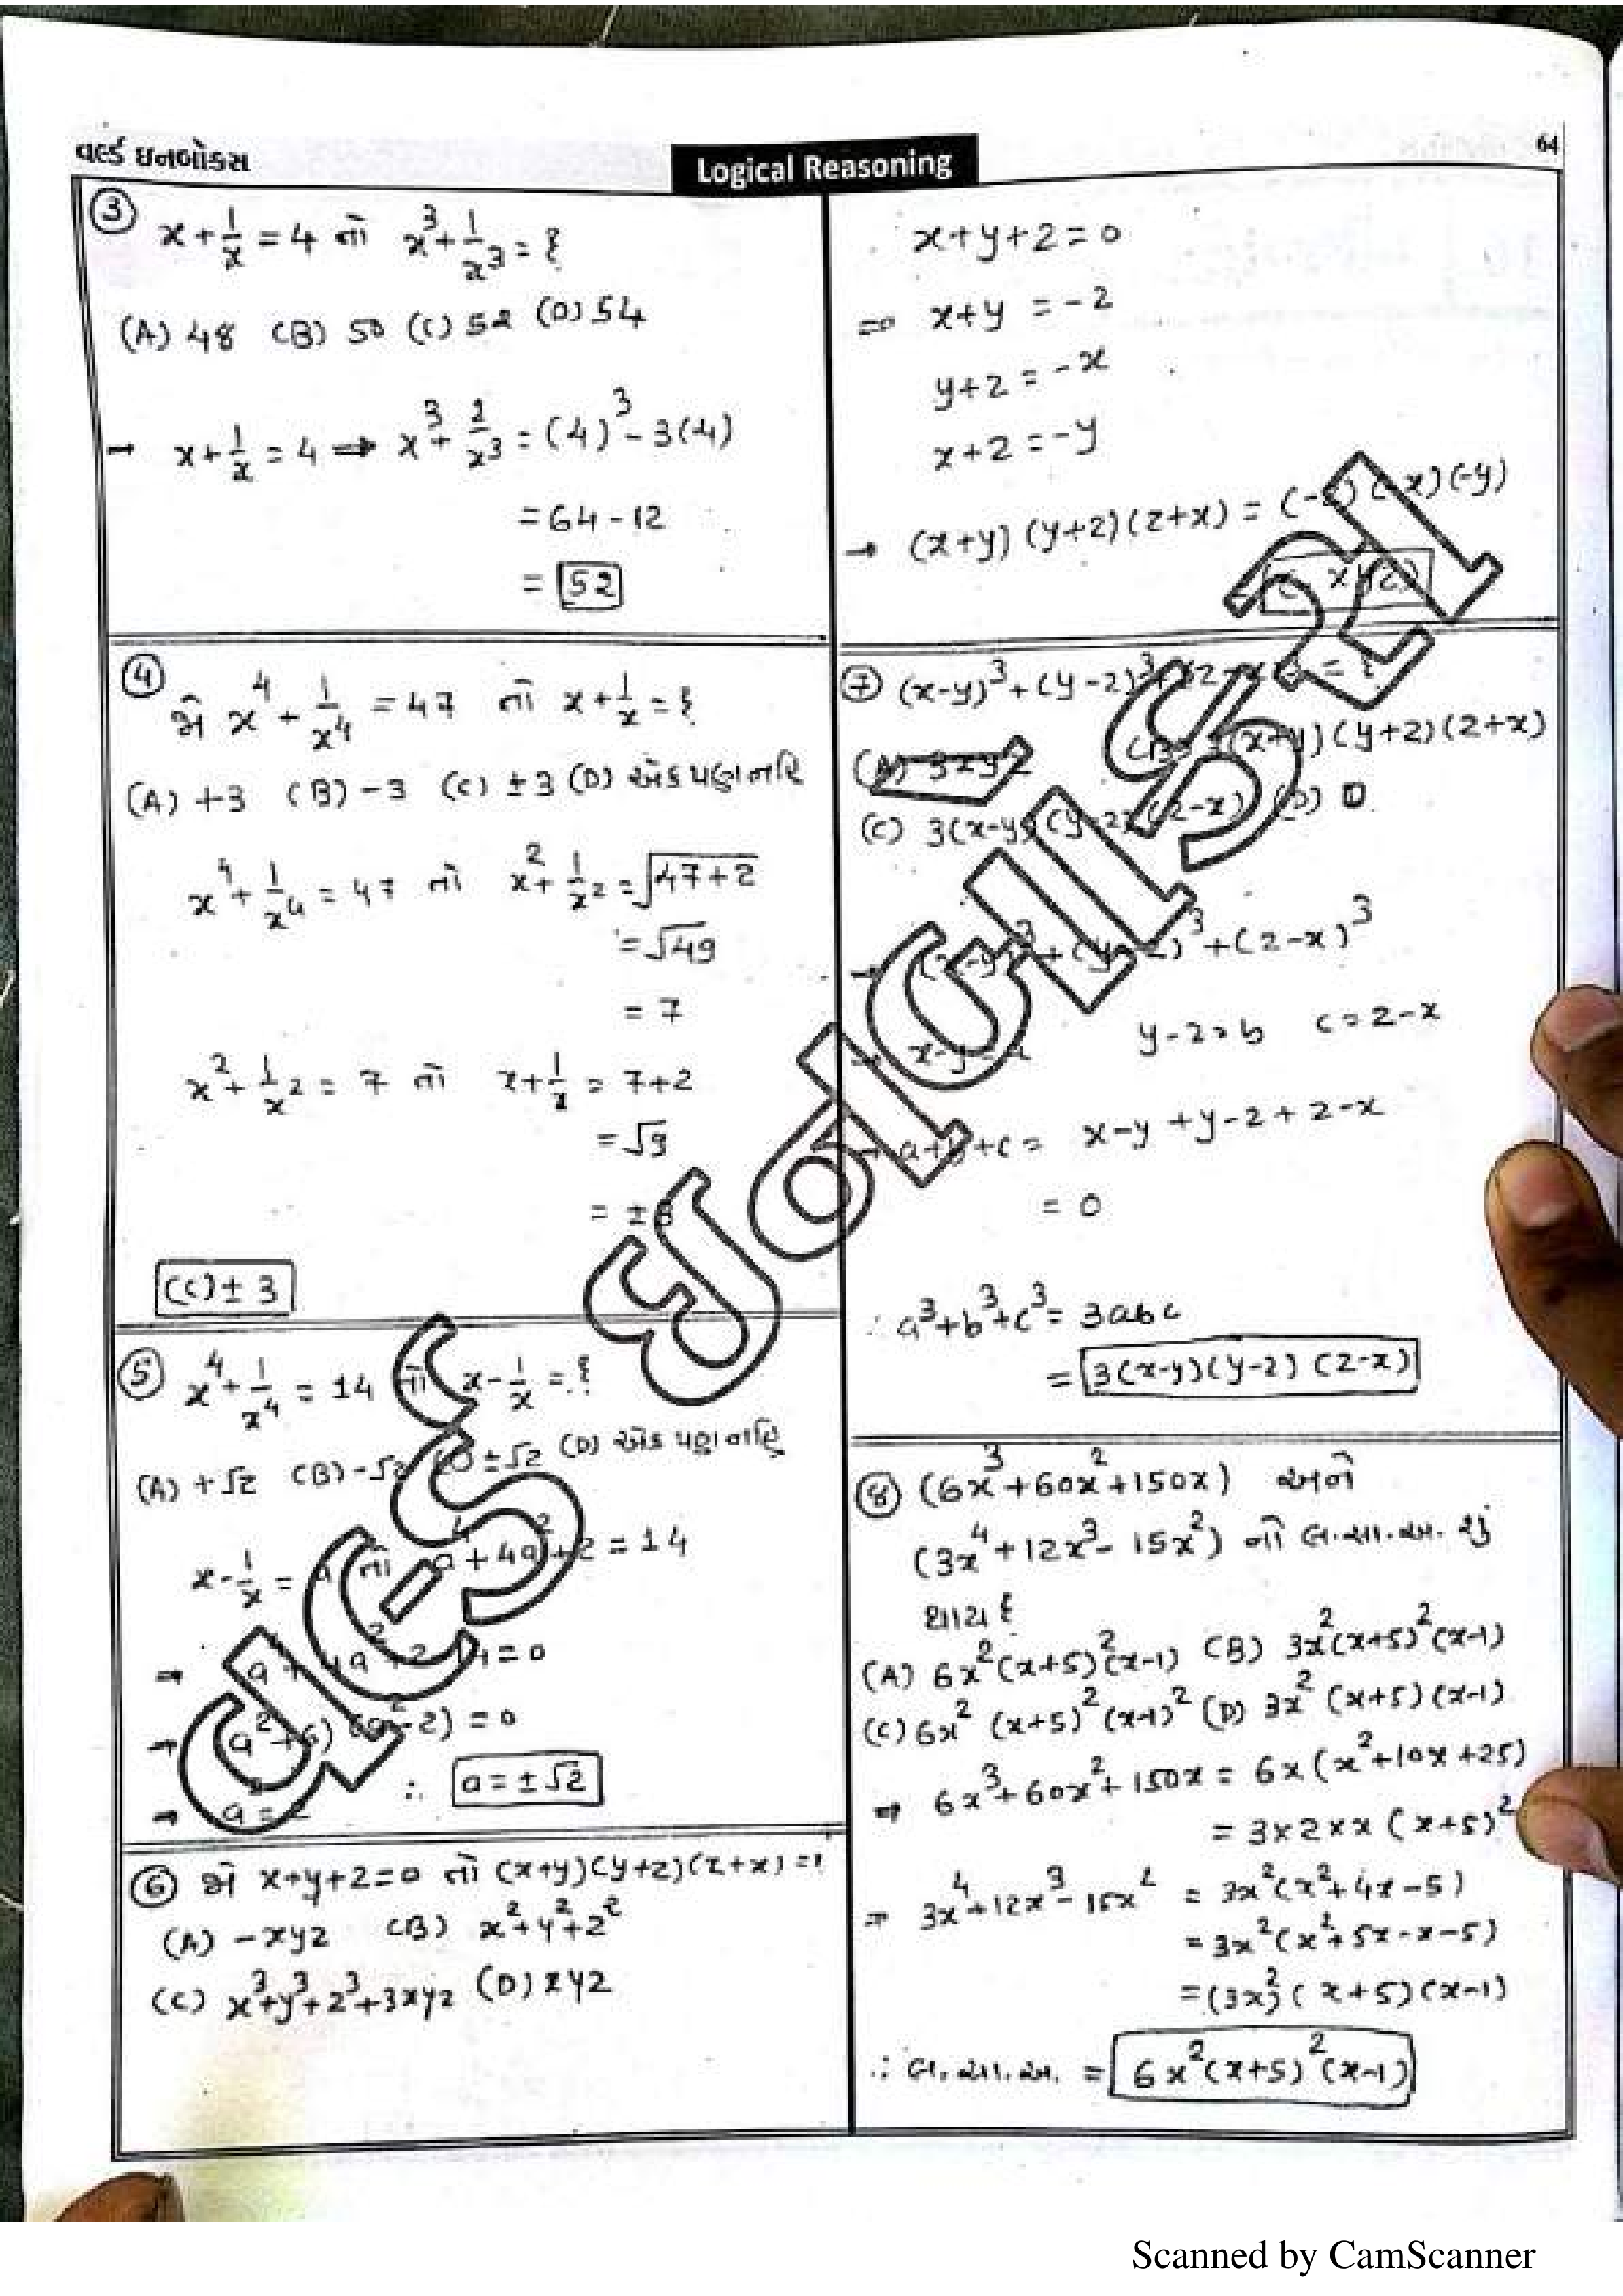 વર્લ્ડ ઇનબોક્સ
Logical Reasoning
64
③ x + 1/x = 4 તો x³ + 1/x³ = ?
(A) 48 (B) 50 (C) 52 (D) 54
→ x + 1/x = 4 ⇒ x³ + 2/x³ = (4)³ - 3(4)
= 64 - 12
= 52
④ જો x⁴ + 1/x⁴ = 47 તો x + 1/x = ?
(A) +3 (B) -3 (C) ±3 (D) એક પણ નહિ
x⁴ + 1/x⁴ = 47 તો x² + 1/x² = √47+2
= √49
= 7
x² + 1/x² = 7 તો x + 1/x = 7+2
= √9
= ±3
(C) ± 3
⑤ x⁴ + 1/x⁴ = 14 તો x - 1/x = ?
(A) +√2 (B) -√2 (C) ±√2 (D) એક પણ નહિ
x - 1/x = a તો a⁴ + 4a² + 2 = 14
⇒ a⁴ + 4a² + 2 - 14 = 0
→ (a² + 6) (a² - 2) = 0
→ a² = 2 ∴ a = ±√2
⑥ જો x+y+2=0 તો (x+y)(y+z)(z+x) = ?
(A) -xyz (B) x²+y²+z²
(C) x³+y³+z³+3xyz (D) xyz
x+y+2=0
⇒ x+y = -2
y+2 = -x
x+2 = -y
→ (x+y) (y+2) (2+x) = (-2) (-x) (-y)
⑦ (x-y)³ + (y-2)³ + (2-x)³ = ?
(A) 3xy2 (B) 3(x+y) (y+2) (2+x)
(C) 3(x-y) (y-2) (2-x) (D) 0
→ (x-y)³ + (y-2)³ + (2-x)³
→ x-y = a y-2 = b c = 2-x
→ a+b+c = x-y+y-2+2-x
= 0
∴ a³+b³+c³ = 3abc
= 3(x-y)(y-2) (2-x)
⑧ (6x³+60x²+150x) અને
(3x⁴+12x³-15x²) નો લ.સા.અ. શું
થાય ?
(A) 6x²(x+5)²(x-1) (B) 3x²(x+5)²(x-1)
(C) 6x² (x+5)² (x-1)² (D) 3x² (x+5) (x-1)
⇒ 6x³+60x²+150x = 6x(x²+10x+25)
= 3×2×x (x+5)²
⇒ 3x⁴+12x³-15x² = 3x²(x²+4x-5)
= 3x²(x²+5x-x-5)
= (3x²) (x+5) (x-1)
∴ લ.સા.અ. = 6x²(x+5)²(x-1)
Scanned by CamScanner